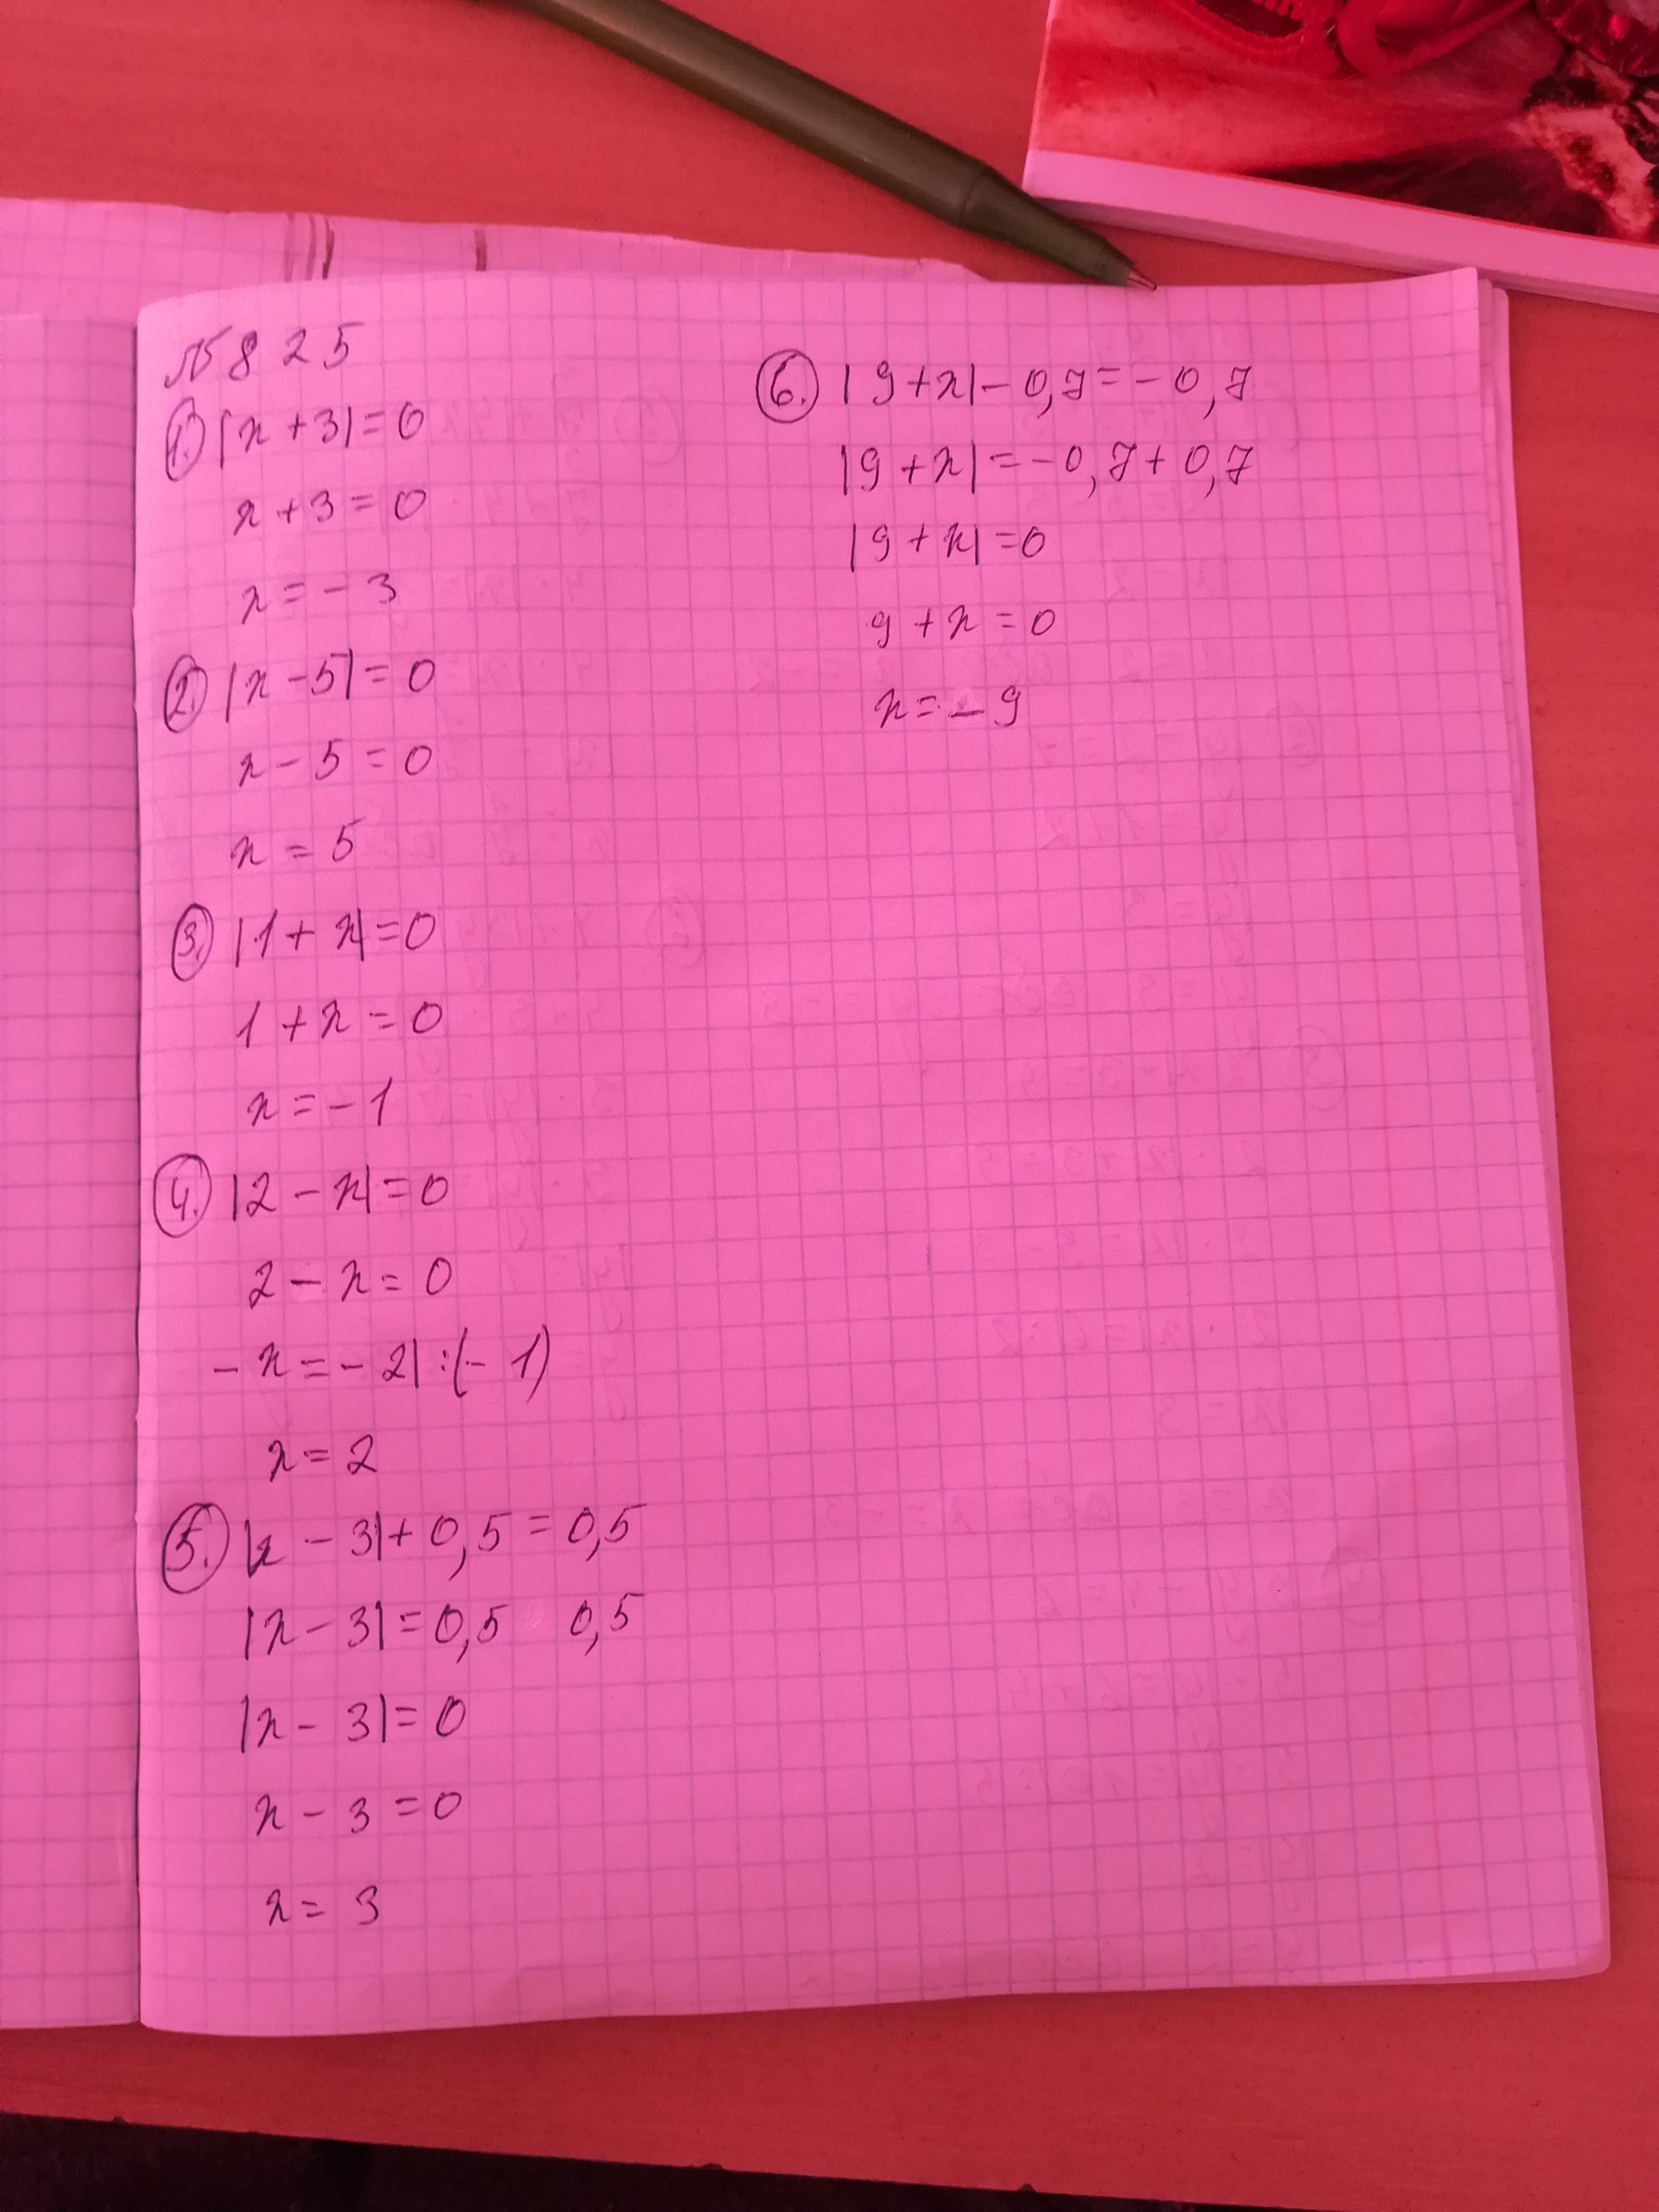 № 825
1. |x+3|=0
x+3=0
x=-3
2. |x-5|=0
x-5=0
x=5
3. |1+x|=0
1+x=0
x=-1
4. |2-x|=0
2-x=0
-x=-2|:(-1)
x=2
5. |x-3|+0,5=0,5
|x-3|=0,5 0,5
|x-3|=0
x-3=0
x=3
6. |9+x|-0,7=-0,7
|9+x|=-0,7+0,7
|9+x|=0
9+x=0
x=-9